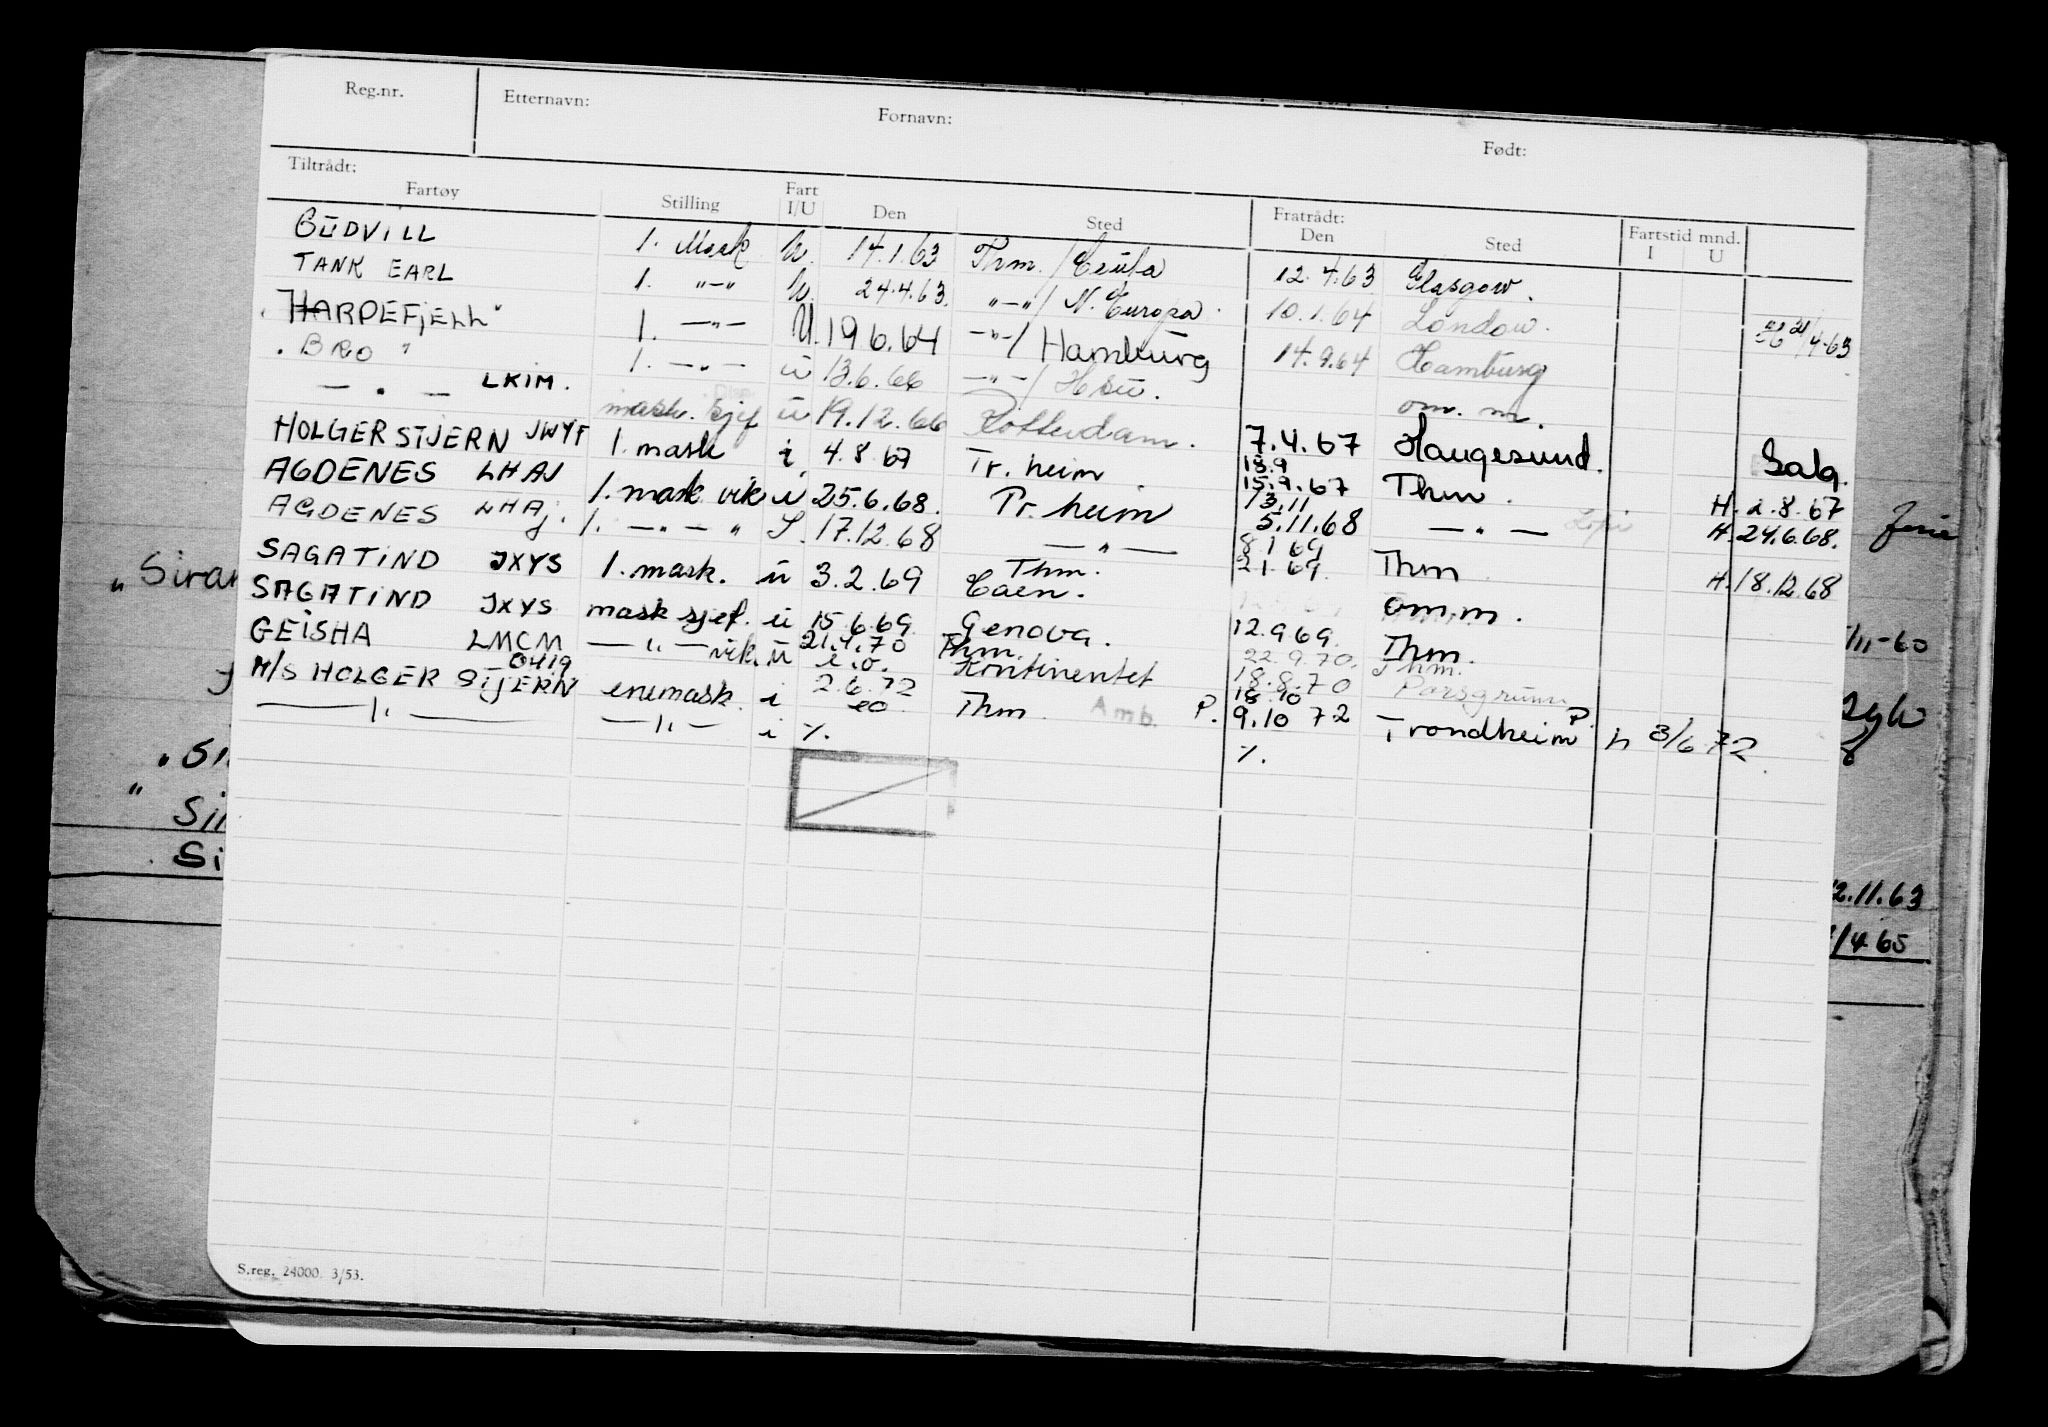 Reg.nr. Etternavn: Fornavn: Født:
Tiltrådt: Fratrådt: Fartstid mnd.
Fartøy Stilling Fart I/U Den Sted Den Sted I U
GUDVILL 1. Mask u. 14.1.63 Thm. / Ceuta 12.4.63 Glasgow.
TANK EARL 1. "-" u. 24.4.63. "-" / N. Europa. 10.1.64 London. 21/4-63
"HARDEFJELL" 1. -"- U. 19 6.64 -"- / Hamburg 14.9.64 Hamburg
"BRO" 1. -"- u 13.6.66 -"- / om. m.
- " - LKIM. mask. sjef u 19.12.66 Rotterdam. 7.4.67 Haugesund. Salg.
HOLGER STJERN JWYF 1. mask i 4.8.67 Tr.heim 18.9 15.9.67 Thm. H. 2.8.67
AGDENES LHAJ 1. mask vik u 25.6.68. Tr.heim 13.11 5.11.68 - " - H. 24.6.68. ferie
AGDENES LHAJ. 1. - " - " S. 17.12.68 - " - 8.1.69 2.1.69. Thm H. 18.12.68
SAGATIND JXYS 1. mask. u 3.2.69 Thm. Caen. om.m.
SAGATIND JXYS mask sjef. u 15.6.69 Genova. 12.9.69. Thm.
GEISHA LMCM - " - vik. u 21.4.70 Thm. Kontinentet 22.9.70. 18.8.70 Thm. Porsgrunn
M/S HOLGER STJERN 0419 enemask. i 2.6.72 Thm. Amb. P. 18.10 9.10 72 Trondheim P. h 3/6 72
- " - - " - i %. %.
S.reg. 24000. 3/53.
"Siran
/11-60
"
Si
2.11.63
/4 65